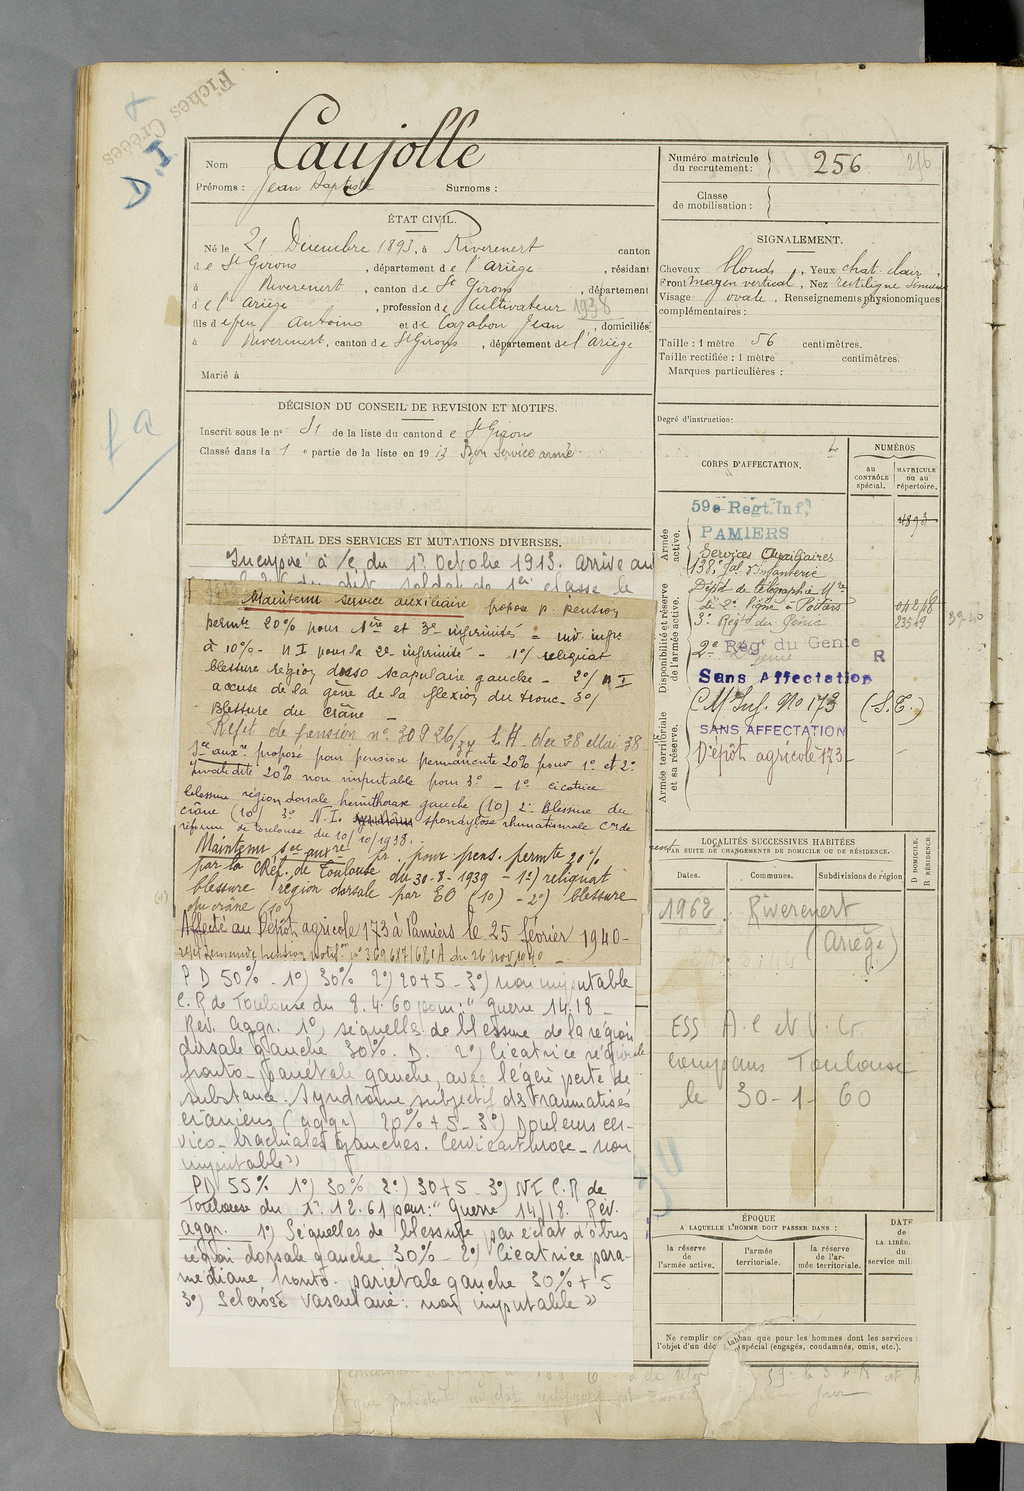 Fiches Créées
D.I
fa
Nom Caujolle
Prénoms : Jean Baptiste Surnoms :
Numéro matricule du recrutement : 256 256
Classe de mobilisation :
ÉTAT CIVIL.
Né le 21 Décembre 1893, à Riverenert canton
de St Girons, département de l'Ariège, résidant
à Riverenert, canton de St Girons, département
de l'Ariège, profession de Cultivateur 1938
fils de feu Antoine et de Cazabon Jean, domiciliés
à Riverenert, canton de St Girons, département de l'Ariège
Marié à
SIGNALEMENT.
Cheveux blonds, Yeux chat. clair,
Front moyen vertical, Nez rectiligne
Visage ovale, Renseignements physionomiques
complémentaires :
Taille : 1 mètre 56 centimètres.
Taille rectifiée : 1 mètre centimètres.
Marques particulières :
DÉCISION DU CONSEIL DE REVISION ET MOTIFS.
Inscrit sous le n° 31 de la liste du canton de St Girons
Classé dans la 1e partie de la liste en 1913 Bon Service armé
Degré d'instruction :
CORPS D'AFFECTATION.
NUMÉROS
au CONTRÔLE spécial.
MATRICULE ou au répertoire.
Armée active.
59e Regt. Inf.
PAMIERS
4893
Services Auxiliaires
138e Inf d'infanterie
Disponibilité et réserve de l'armée active.
Dépôt de télégraphie Mre
de 2e ligne à Poitiers 04218
3e Régt du Génie 23549 39-40
2e Reg. du Genie R
Sans Affectation
Cie Mre Inf. No 173 (S.E.)
Armée territoriale et sa réserve.
SANS AFFECTATION
Dépôt agricole 173
DÉTAIL DES SERVICES ET MUTATIONS DIVERSES.
Incorporé à /c du 1er Octobre 1913. arrivé au
corps du dit soldat de 1ère classe le
Maintenu service auxiliaire propose p. pension
permte 20% pour 1ère et 3e infirmités = inv. infre
à 10% - N I pour la 2e infirmité - 1°/ reliquat
blessure région dorso scapulaire gauche - 2°/ N I
accuse de la gêne de la flexion du tronc - 3°/
Blessure du crâne -
Rejet de pension n° 30926/37 L.A. du 28 Mai 38
Sce auxre proposé pour pension permanente 20% pour 1° et 2°
Invalidité 20% non imputable pour 3° - 1° cicatrice
blessure région dorsale hémithorax gauche (10) 2° Blessure du
crâne (10) 3° N.I. spondylose rhumatismale Con de
réforme de Toulouse du 10/10/1938.
Maintenu sce auxre pr. pour pens. permte 20%
par la CRéf. de Toulouse du 30-8-1939 - 1°) reliquat
blessure région dorsale par EO (10) - 2°) blessure
du crâne (10)
Affecté au Dépôt agricole 173 à Pamiers le 25 février 1940 -
rejet demande pension du 26 nov. 1940 -
P D 50% - 1°) 30% 2°) 20+5 - 3°) non imputable
C.R de Toulouse du 8.4.60 pour : "Guerre 14.18 -
Rev. aggr. 1°) séquelles de blessure de la région
dorsale gauche 30%. D. 2°) Cicatrice région
fronto-pariétale gauche, avec légère perte de
substance. Syndrome subjectif des traumatisés
crâniens (aggr.) 20% + 5 - 3°) Douleurs cer-
vico-brachiales gauches. Cervicarthrose - non
imputable"
PD 55% 1°) 30% 2°) 30+5 - 3°) NI C.R de
Toulouse du 1er.12.61 pour : "Guerre 14/18. Rev.
aggr. 1°) Séquelles de blessure par éclat d'obus
région dorsale gauche 30% - 2°) Cicatrice para-
médiane fronto-pariétale gauche 30% + 5
3°) Sclérose vasculaire : non imputable"
LOCALITÉS SUCCESSIVES HABITÉES
PAR SUITE DE CHANGEMENTS DE DOMICILE OU DE RÉSIDENCE.
Dates. Communes. Subdivisions de région D DOMICILE. R RÉSIDENCE
1962 Riverenert
(Ariège)
ESS A.C et V.G
Compans Toulouse
le 30-1-60
ÉPOQUE
A LAQUELLE L'HOMME DOIT PASSER DANS :
la réserve de l'armée active.
l'armée territoriale.
la réserve de l'armée territoriale.
DATE DE LA LIBÉR. du service mil
Ne remplir ce tableau que pour les hommes dont les services
l'objet d'un déc spécial (engagés, condamnés, omis, etc.).